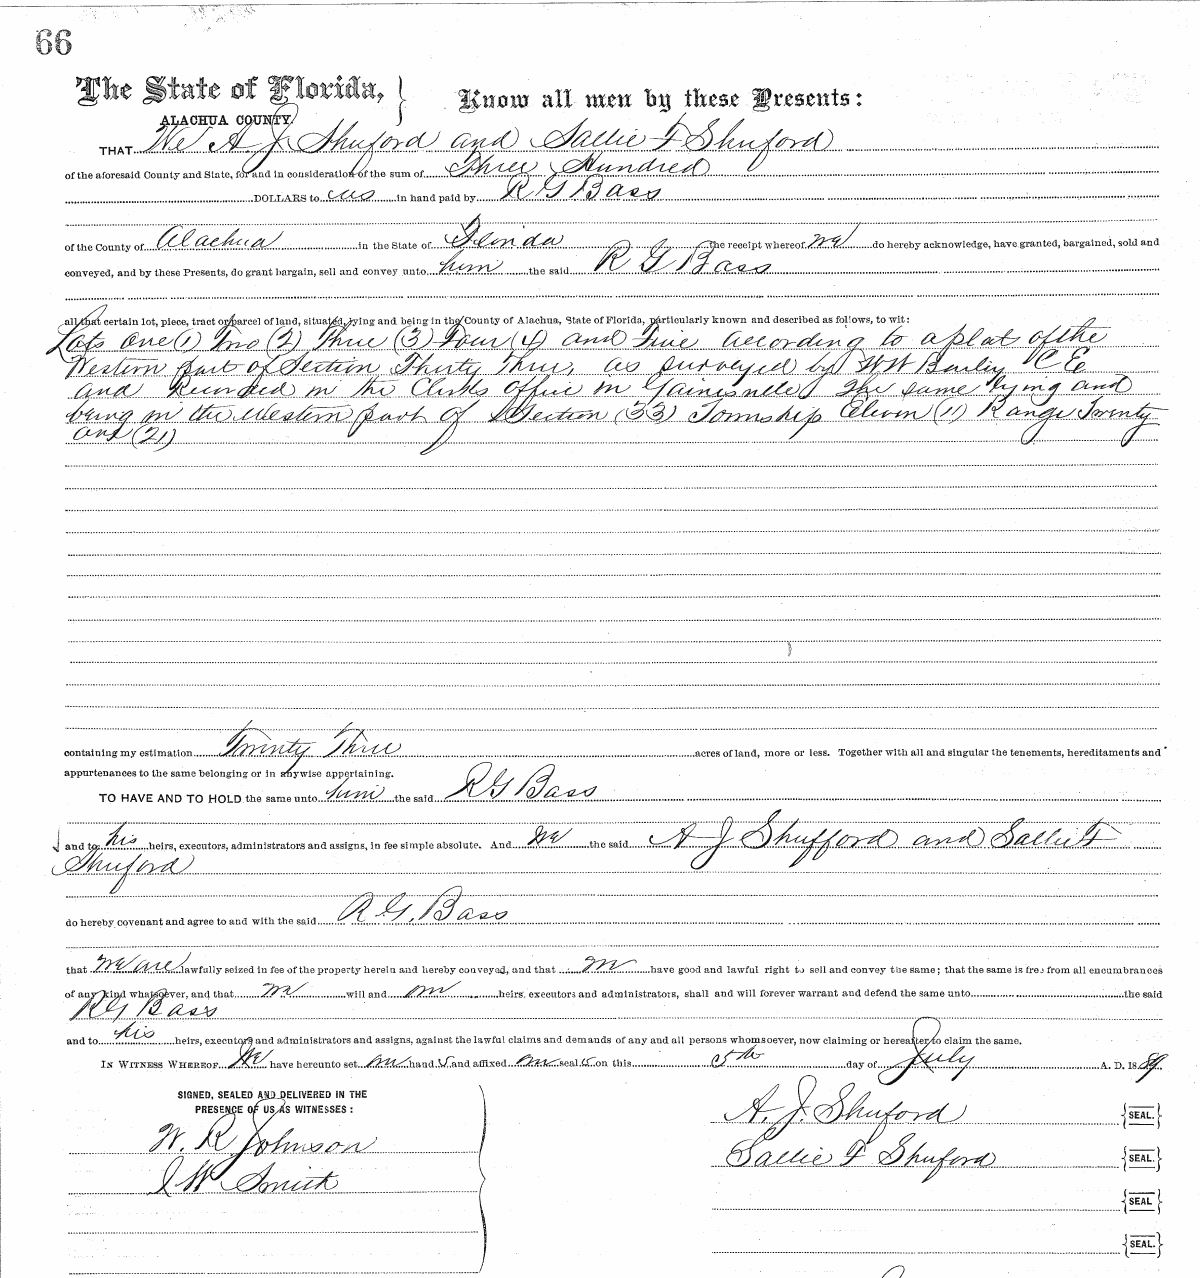 66
The State of Florida,
ALACHUA COUNTY.
Know all men by these Presents:
THAT We A J Shuford and Sallie F Shuford
of the aforesaid County and State, for and in consideration of the sum of Three Hundred
DOLLARS to us in hand paid by R G Bass
of the County of Alachua in the State of Florida the receipt whereof we do hereby acknowledge, have granted, bargained, sold and
conveyed, and by these Presents, do grant bargain, sell and convey unto him the said R G Bass
all that certain lot, piece, tract or parcel of land, situated, lying and being in the County of Alachua, State of Florida, particularly known and described as follows, to wit:
Lots One (1) Two (2) Three (3) Four (4) and Five according to a plat of the
Western part of Section Thirty Three, as surveyed by W W Barley C E
and Recorded in the Clerks office in Gainesville, the same lying and
being in the Western part of Section (33) Township Eleven (11) Range Twenty
one (21)
containing my estimation Twenty Three acres of land, more or less. Together with all and singular the tenements, hereditaments and
appurtenances to the same belonging or in anywise appertaining.
TO HAVE AND TO HOLD the same unto him the said R G Bass
and to his heirs, executors, administrators and assigns, in fee simple absolute. And we the said A J Shufford and Sallie F
Shuford
do hereby covenant and agree to and with the said R. G. Bass
that we are lawfully seized in fee of the property herein and hereby conveyed, and that we have good and lawful right to sell and convey the same; that the same is free from all encumbrances
of any kind whatsoever, and that we will and our heirs, executors and administrators, shall and will forever warrant and defend the same unto the said
R G Bass
and to his heirs, executors and administrators and assigns, against the lawful claims and demands of any and all persons whomsoever, now claiming or hereafter to claim the same.
IN WITNESS WHEREOF We have hereunto set our hands and affixed our seals on this 5th day of July A. D. 1889.
SIGNED, SEALED AND DELIVERED IN THE
PRESENCE OF US AS WITNESSES:
W. R Johnson
J W Smith
A. J. Shuford {SEAL.}
Sallie F Shuford {SEAL.}
{SEAL}
{SEAL.}